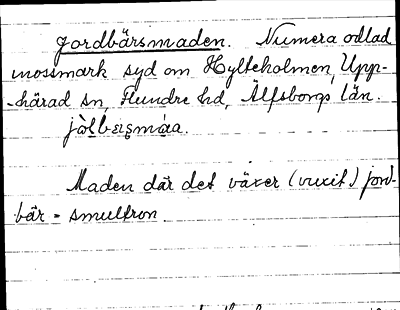 Jordbärsmaden. Numera odlad
mossmark syd om Hylteholmen, Upp-
-härad sn, Flundre hd, Älfsborgs län.
Maden där det växer (vuxit) jord-
bär = smultron